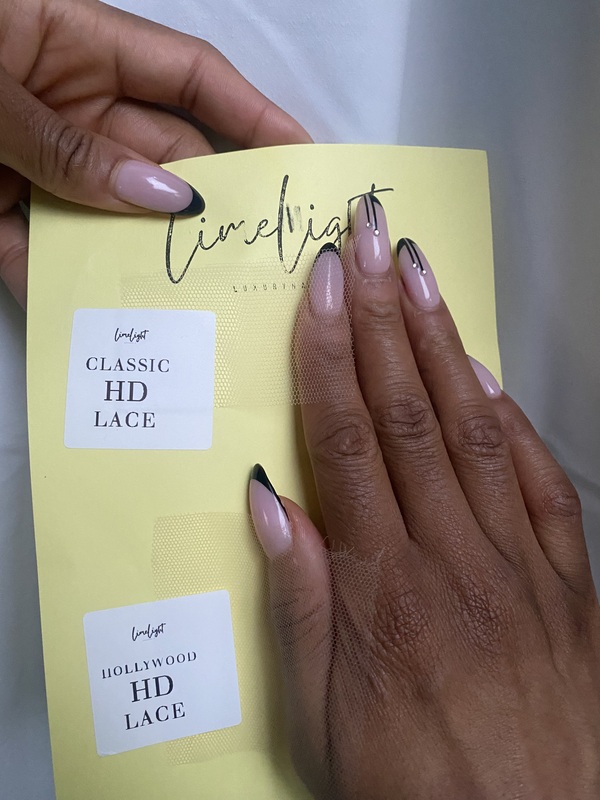 limelight
limelight
CLASSIC
HD
LACE
limelight
HOLLYWOOD
HD
LACE